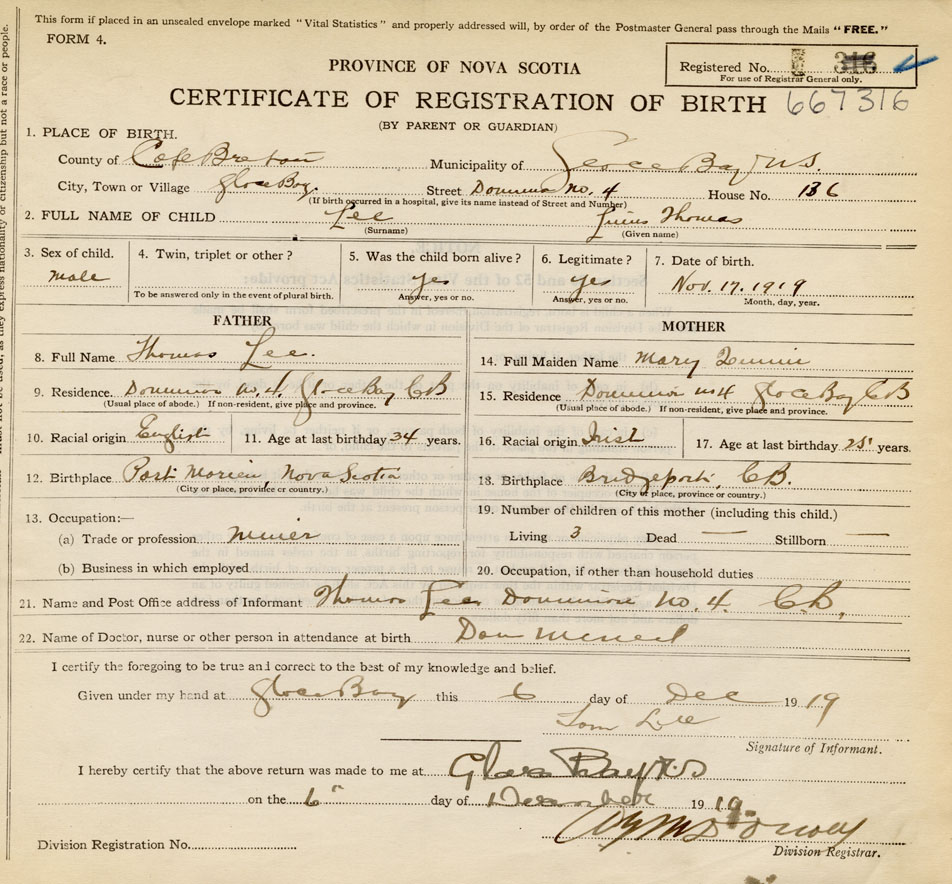 This form if placed in an unsealed envelope marked "Vital Statistics" and properly addressed will, by order of the Postmaster General pass through the Mails "FREE."
FORM 4.
Registered No. 316
For use of Registrar General only.
PROVINCE OF NOVA SCOTIA
CERTIFICATE OF REGISTRATION OF BIRTH 667316
(BY PARENT OR GUARDIAN)
1. PLACE OF BIRTH.
County of Cape Breton Municipality of Glace Bay N.S.
City, Town or Village Glace Bay. Street Dominion No. 4 House No. 136
(If birth occurred in a hospital, give its name instead of Street and Number)
2. FULL NAME OF CHILD Lee Thomas
(Surname) (Given name)
3. Sex of child. 4. Twin, triplet or other? 5. Was the child born alive? 6. Legitimate? 7. Date of birth.
male yes yes Nov. 17. 1919
To be answered only in the event of plural birth. Answer, yes or no. Answer, yes or no. Month, day, year.
FATHER MOTHER
8. Full Name Thomas Lee. 14. Full Maiden Name Mary
9. Residence. Dominion No. 4. Glace Bay CB 15. Residence Dominion No 4 Glace Bay CB
(Usual place of abode.) If non-resident, give place and province. (Usual place of abode.) If non-resident, give place and province.
10. Racial origin English 11. Age at last birthday 34 years. 16. Racial origin Irish 17. Age at last birthday 25 years.
12. Birthplace Port Morien, Nova Scotia 18. Birthplace Bridgeport, C.B.
(City or place, province or country.) (City or place, province or country.)
13. Occupation:— 19. Number of children of this mother (including this child.)
(a) Trade or profession miner Living 3 Dead — Stillborn —
(b) Business in which employed 20. Occupation, if other than household duties
21. Name and Post Office address of Informant Thomas Lee Dominion No. 4. C.B.
22. Name of Doctor, nurse or other person in attendance at birth Dan McNeil
I certify the foregoing to be true and correct to the best of my knowledge and belief.
Given under my hand at Glace Bay this 6 day of Dec 1919
Tom Lee
Signature of Informant.
I hereby certify that the above return was made to me at Glace Bay N.S
on the 6" day of December 1919.
Division Registration No. Division Registrar.